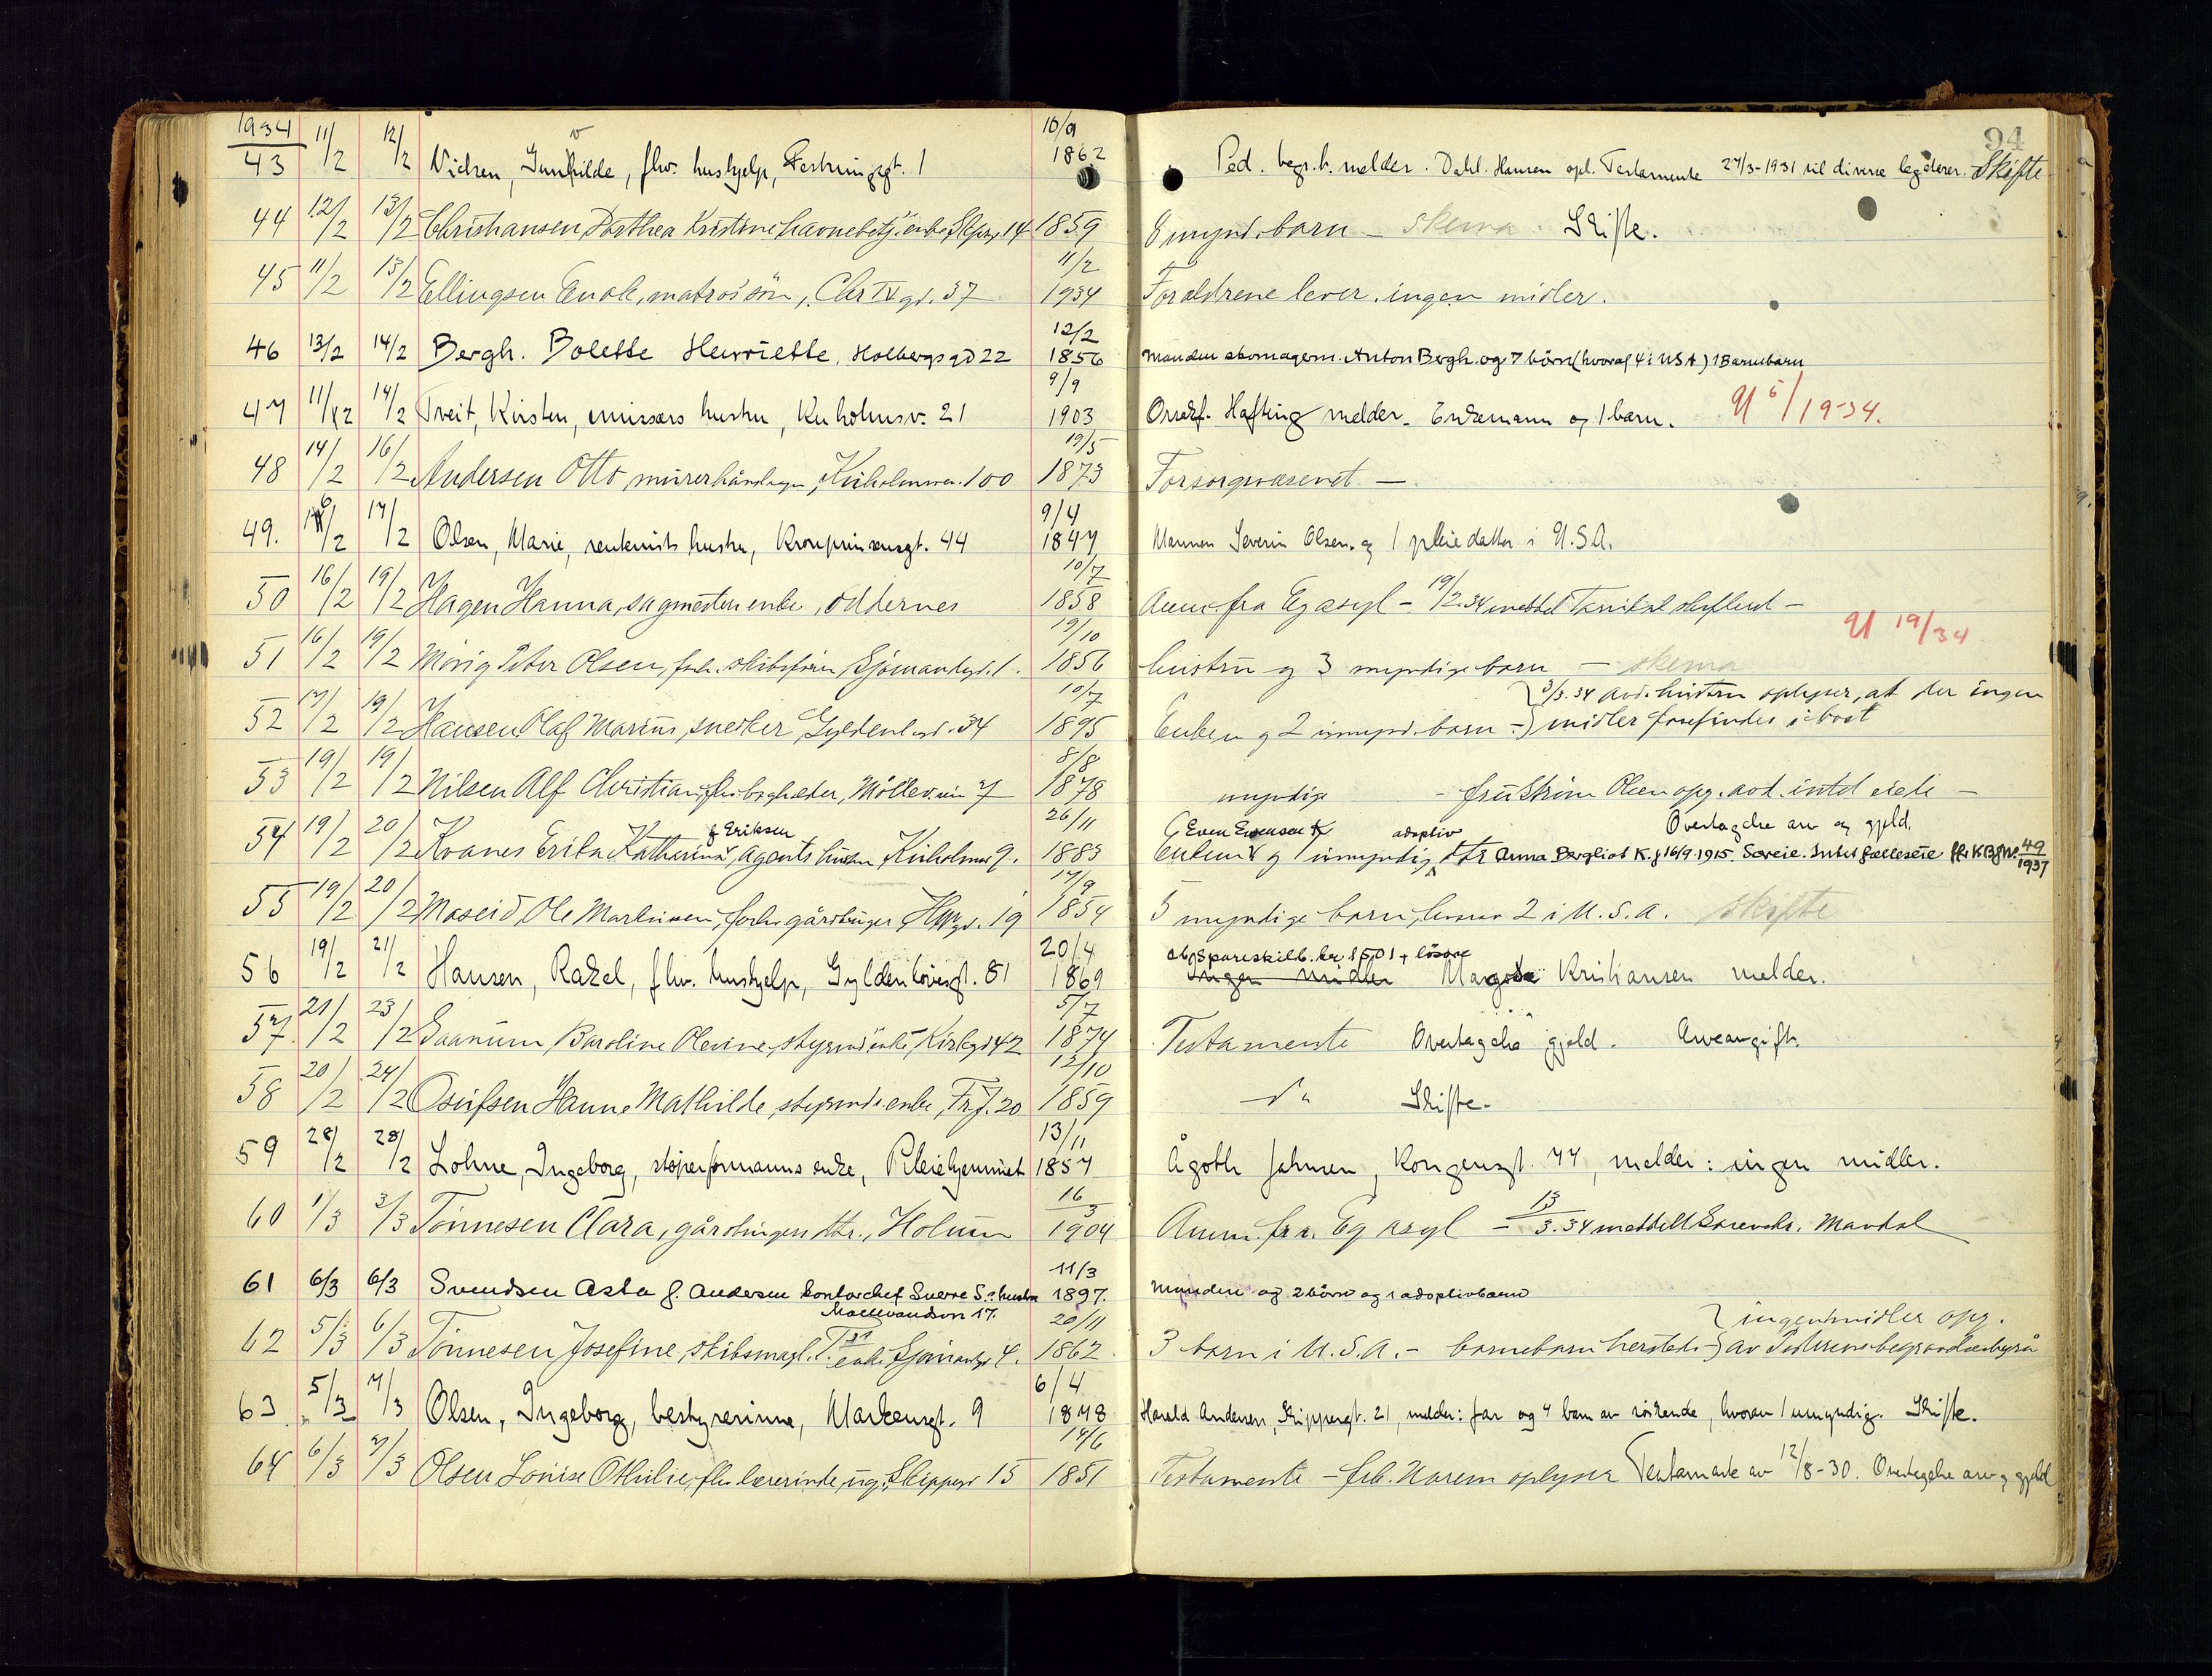 94
1934
43 11/2 12/2 Nielsen, Gunvilde, fhv. hushjelp, Festningsgt. 1 10/9 1862 Ped. begr.b. melder. Dahl. Hansen opl. Testamente 27/3-1931 til diverse legaterer. Skifte
44 12/2 13/2 Christiansen Dorthea Kristine havnebetj. enke, Skippgt 14 1859 8 mynd. barn – skema Skifte.
45 11/2 13/2 Ellingsen Enok, matros sön, Chr IV gt. 37 11/2 1934 Forældrene lever. ingen midler.
46 13/2 14/2 Bergh. Bolette Henriette, Holbergsgd 22 12/2 1856 Manden skomagerm. Anton Bergh. og 7 börn (hvoraf 4 i USA) 1 Barnebarn
47 11/12 14/2 Tveit, Kirsten, emissærs hustru, Kuholmsv. 21 9/9 1903 Orrekf. Hafting melder. Enkemann og 1 barn. U 5/1934.
48 14/2 16/2 Andersen Otto, murerhåndlanger, Kuholmsvn. 100 19/5 1873 Forsorgsvæsenet –
49. 16/2 17/2 Olsen, Marie, rentenists hustru, Kronprinsensgt. 44 9/4 1847 Mannen Severin Olsen. og 1 pleiedatter i U.S.A.
50 16/2 19/2 Hagen Hanna, sagmesters enke, Oddernes 10/7 1858 Anm. fra Eg asyl – 19/2.34 meddelt
51 16/2 19/2 Mörig Peter Olsen, forh. skibsförer, Sjömandsgt. 1. 19/10 1856 hustru og 3 myndige barn – skema U 19/34
52 17/2 19/2 Hansen Olaf Marius, snedker Gyldenl. gt. 34 10/7 1895 Enken og 2 umynd. barn – } 3/3.34 avd. hustru oplyser, at der ingen
midler forefindes i boet
53 19/2 19/2 Nilsen Alf Christian, fhv boghaeder, Möllevnn 7 8/8 1878 myndige – fru Ström Olsen opg. avd. intet eiet –
54 19/2 20/2 Kvanes Erika Katharina f Eriksen, Agents hustru Kuholmsv 9. 26/11 1883 Even Evensen K Enkem. og 1 umyndig adoptiv dtr Anna Bergliot K. f 16/9.1915. Særeie. Intet fælleseie Overtagelse arv og gjeld. 49/1937
55 19/2 20/2 Moseid Ole Martinsen, forh. gårdbruger, 19 17/9 1854 5 myndige barn, hvorav 2 i U.S.A. skifte
56 19/2 21/2 Hansen, Rakel, fhv. hushjelp, Gyldenlövesgt. 81 20/4 1869 Spareskill. kr 1501 + lösöre
Ingen midler Kristiansen melder.
57 21/2 23/2 Saanum, Baroline Olevine, styrmd enke, Kirkegt 42 5/7 1874 Testamente Overtagelse gjeld. Arveavgift.
58 20/2 24/2 Osufsen Hanne Mathilde, styrmds. enke, Fr. f. 20 12/10 1859 do Skifte.
59 28/2 28/2 Lohne, Ingeborg, stöperformanns enke, Pleiehjemmet 13/11 1857 Ågoth Johnsen, Kongensgt. 44, melder: ingen midler.
60 1/3 3/3 Tönnesen Clara, gårdbrugers dtr., Holum 16/3 1904 Anm. fra. Eg asyl – 13/3.34 meddelt Sorenskr. Mandal
61 6/3 6/3 Svendsen Asta f. Andersen kontorchef Sverre S.s hustru 11/3 1897. Manden og 2 börn og 1 adoptivbarn
Moellevandsvn 17.
62 5/3 6/3 Tönnesen Josefine, skibsmægl. enke Sjömandsgt 4. 20/11 1862 3 barn i U.S.A. – barnebarn herstedes } ingen midler opg.
av Pedersens begravelsesbyrå
63 5/3 7/3 Olsen, Ingeborg, bestyrerinne, Markensgt. 9 6/4 1878 Harald Andersen, Skippergt. 21, melder: far og 4 barn av söskende, hvorav 1 umyndig. Skifte.
64 6/3 7/3 Olsen Lovise Othilie, fhv lærerinde, ug., Skippergt 15 14/6 1851 Testamente – frk. Norem oplyser Testamente av 12/8-30. Overtagelse arv og gjeld